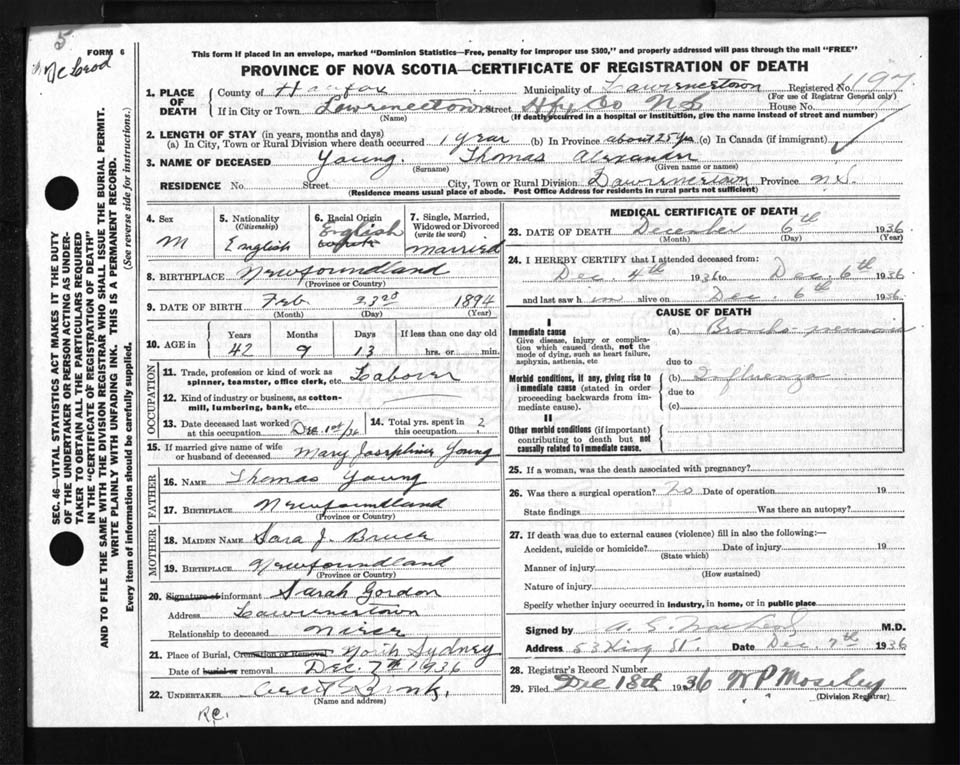 5
FORM 6
McLeod
This form if placed in an envelope, marked "Dominion Statistics—Free, penalty for improper use $300," and properly addressed will pass through the mail "FREE"
PROVINCE OF NOVA SCOTIA—CERTIFICATE OF REGISTRATION OF DEATH
1. PLACE OF DEATH
County of Halifax Municipality of Lawrencetown Registered No. 1197
(For use of Registrar General only)
If in City or Town Lawrencetown Street Hfx Co NS House No.
(Name) (If death occurred in a hospital or institution, give the name instead of street and number)
2. LENGTH OF STAY (in years, months and days)
(a) In City, Town or Rural Division where death occurred 1 year (b) In Province about 25 yrs (c) In Canada (if immigrant)
3. NAME OF DECEASED Young. Thomas Alexander
(Surname) (Given name or names)
RESIDENCE No. Street City, Town or Rural Division Lawrencetown Province N.S.
(Residence means usual place of abode. Post Office Address for residents in rural parts not sufficient)
4. Sex M
5. Nationality (Citizenship) English
6. Racial Origin English
7. Single, Married, Widowed or Divorced (write the word) married
8. BIRTHPLACE Newfoundland
(Province or Country)
9. DATE OF BIRTH Feb 23rd 1894
(Month) (Day) (Year)
10. AGE in Years 42 Months 9 Days 13 If less than one day old hrs. or min.
OCCUPATION
11. Trade, profession or kind of work as spinner, teamster, office clerk, etc. Laborer
12. Kind of industry or business, as cotton-mill, lumbering, bank, etc.
13. Date deceased last worked at this occupation Dec 1st/36
14. Total yrs. spent in this occupation ?
15. If married give name of wife or husband of deceased Mary Josephine Young
FATHER
16. NAME Thomas Young
17. BIRTHPLACE Newfoundland
(Province or Country)
MOTHER
18. MAIDEN NAME Sara J. Bruce
19. BIRTHPLACE Newfoundland
(Province or Country)
20. Signature of informant Sarah Gordon
Address Lawrencetown
Relationship to deceased niece
21. Place of Burial, Cremation or Removal North Sydney
Date of burial or removal Dec. 7th 1936
22. UNDERTAKER
(Name and address)
R.C.
MEDICAL CERTIFICATE OF DEATH
23. DATE OF DEATH December 6th 1936
(Month) (Day) (Year)
24. I HEREBY CERTIFY that I attended deceased from:
Dec. 4th 1936 to Dec. 6th 1936
and last saw him alive on Dec. 6th 1936
CAUSE OF DEATH
I
Immediate cause (a) Broncho pneumonia
Give disease, injury or complication which caused death, not the mode of dying, such as heart failure, asphyxia, asthenia, etc
due to
Morbid conditions, if any, giving rise to immediate cause (stated in order proceeding backwards from immediate cause).
(b) Influenza
due to
(c)
II
Other morbid conditions (if important) contributing to death but not causally related to immediate cause.
25. If a woman, was the death associated with pregnancy?
26. Was there a surgical operation? no Date of operation 19
State findings Was there an autopsy?
27. If death was due to external causes (violence) fill in also the following:—
Accident, suicide or homicide? Date of injury 19
(State which)
Manner of injury
(How sustained)
Nature of injury
Specify whether injury occurred in industry, in home, or in public place
Signed by A. G. MacLeod M.D.
Address 53 King St. Date Dec. 7th 1936
28. Registrar's Record Number
29. Filed Dec 18th 1936 W P Moseley
(Division Registrar)
SEC. 46—VITAL STATISTICS ACT MAKES IT THE DUTY
OF THE UNDERTAKER OR PERSON ACTING AS UNDER-
TAKER TO OBTAIN ALL THE PARTICULARS REQUIRED
IN THE "CERTIFICATE OF REGISTRATION OF DEATH"
AND TO FILE THE SAME WITH THE DIVISION REGISTRAR WHO SHALL ISSUE THE BURIAL PERMIT.
WRITE PLAINLY WITH UNFADING INK. THIS IS A PERMANENT RECORD.
Every item of information should be carefully supplied. (See reverse side for instructions.)